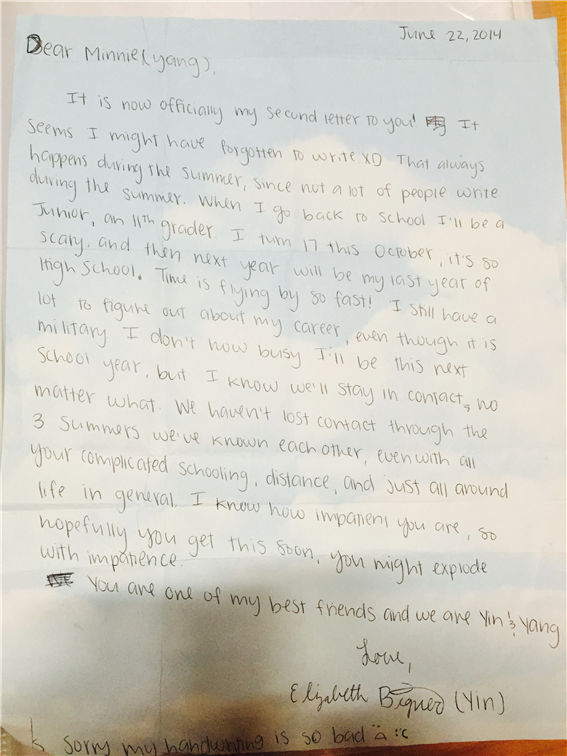 June 22, 2014
Dear Minnie (yang),
It is now officially my second letter to you! It
seems I might have forgotten to write XD That always
happens during the summer, since not a lot of people write
during the summer. When I go back to school I'll be a
Junior, an 11th grader I turn 17 this October, it's so
scary, and then next year will be my last year of
High School. Time is flying by so fast! I still have a
lot to figure out about my career, even though it is
military I don't how busy I'll be this next
school year, but I know we'll stay in contact, no
matter what. We haven't lost contact through the
3 summers we've known each other, even with all
your complicated schooling, distance, and just all around
life in general. I know how impatient you are, so
hopefully you get this soon, you might explode
with impatience.
You are one of my best friends and we are Yin & Yang
Love,
Elizabeth (Yin)
sorry my handwriting is so bad :c